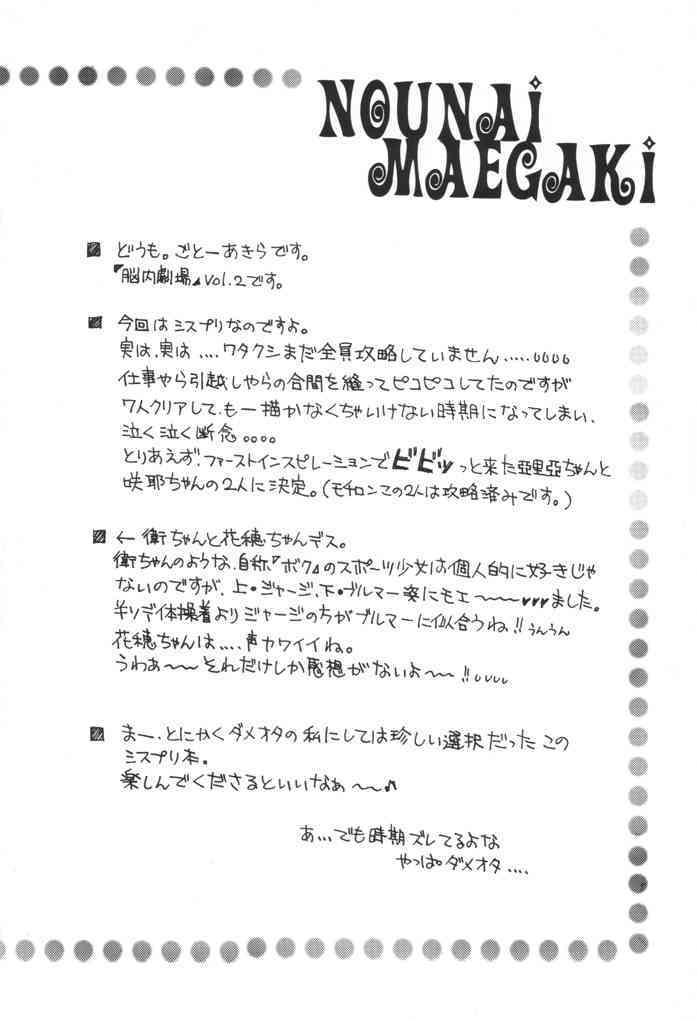 NOUNAi
MAEGAKi
どうも。ごとーあきらです。
『脳内劇場』vol.2です。
今回はミスプリなのですよ。
実は、実は....ワタクシまだ全員攻略していません.....
仕事やら引越しやらの合間を縫ってピコピコしてたのですが
7人クリアして、も一描かなくちゃいけない時期になってしまい、
泣く泣く断念。。。。
とりあえず、ファーストインスピレーションでビビッっと来た亞里亞ちゃんと
咲耶ちゃんの2人に決定。(モチロンこの2人は攻略済みです。)
← 衛ちゃんと花穂ちゃんデス。
衛ちゃんのような、自称『ボク』のスポーツ少女は個人的に好きじゃ
ないのですが、上・ジャージ、下・ブルマー姿にモエ〜〜〜♥♥♥ました。
半ソデ体操着よりジャージのちがブルマーに似合うね!!うんうん
花穂ちゃんは....声カワイイね。
うわぁ〜〜それだけしか感想がないよ〜〜!!
まー、とにかくダメオタの私にしては珍しい選択だったこの
ミスプリ本。
楽しんでくださるといいなぁ〜〜♪
あ...でも時期ズレてるよな
やっぱダメオタ....